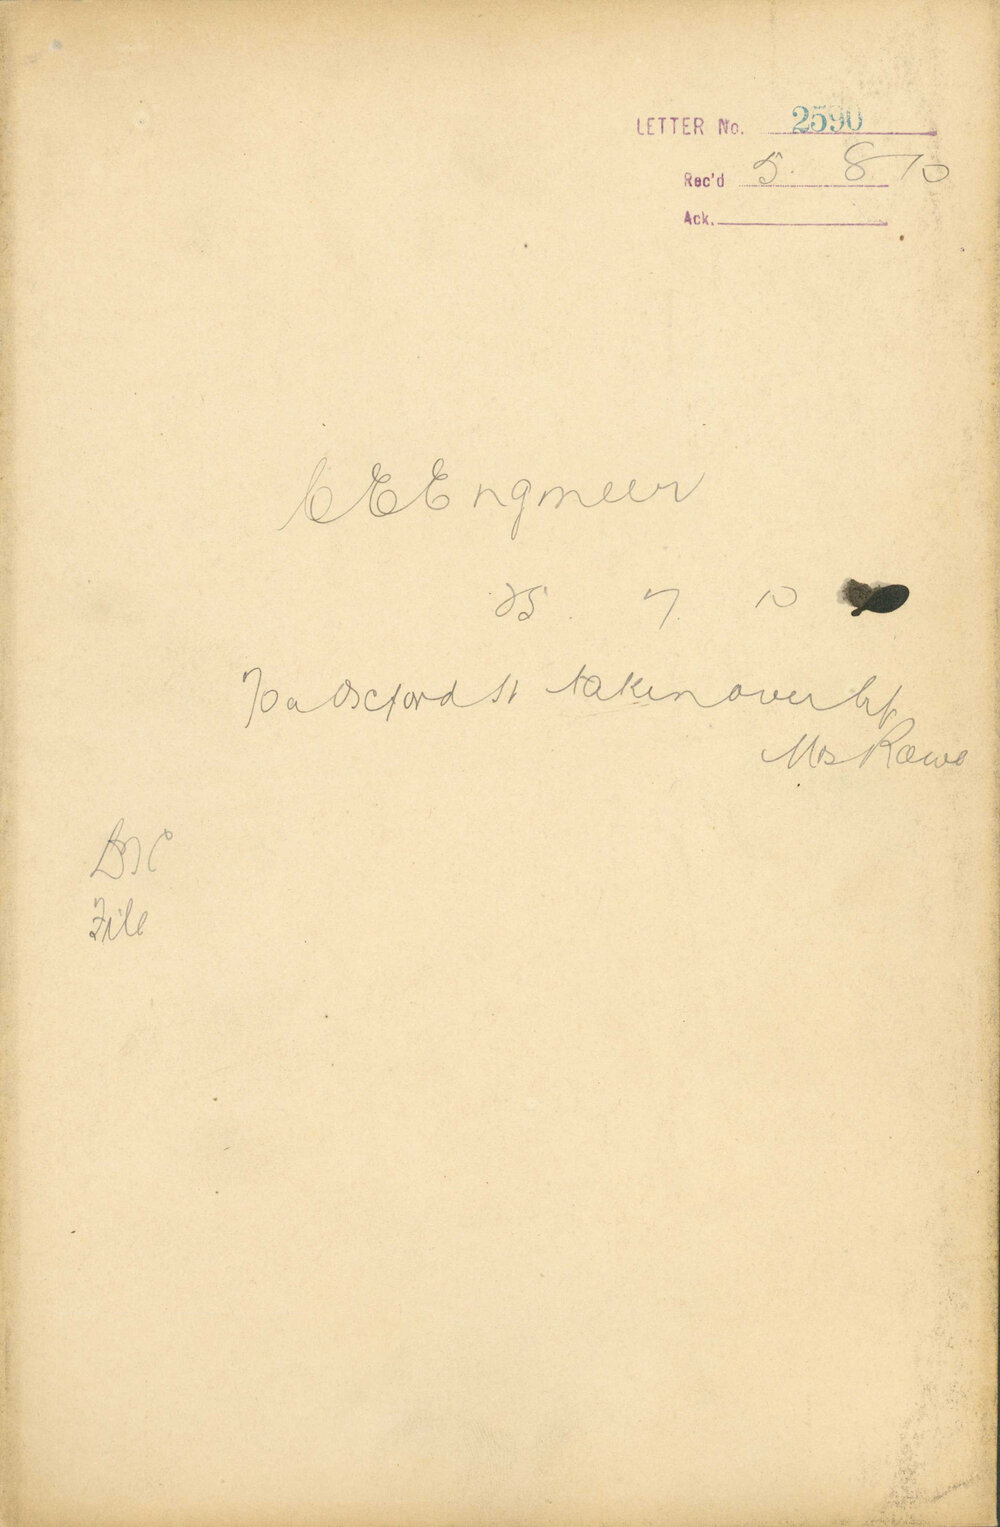 LETTER No. 2590
Rec'd 5. 8 10
Ack.
C E Engineer
25. 7. 10
70a Oxford St taken over by
Mrs Rowe
File